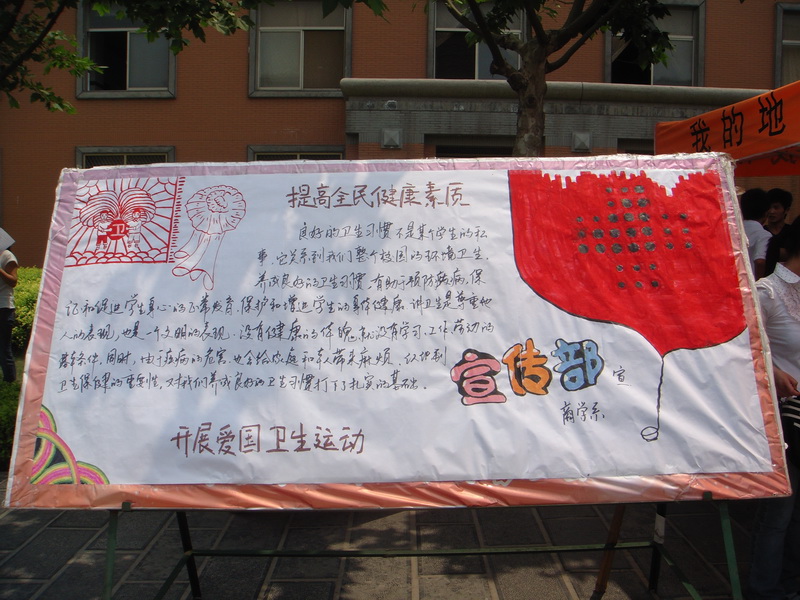 我的地
提高全民健康素质
卫
良好的卫生习惯不是某个学生的私
事，它关系到我们整个校园的环境卫生，
养成良好的卫生习惯，有助于预防疾病，保
证和促进学生身心的正常发育，保护和增进学生的身体健康，讲卫生是尊重他
人的表现，也是一个文明的表现，没有健康的体魄，就没有学习、工作、劳动的
基条件，同时，由于疾病的危害，也会给家庭和亲人带来麻烦，认识到
卫生保健的重要性，又对我们养成良好的卫生习惯打下了扎实的基础。
宣传部 宣
商学系
开展爱国卫生运动